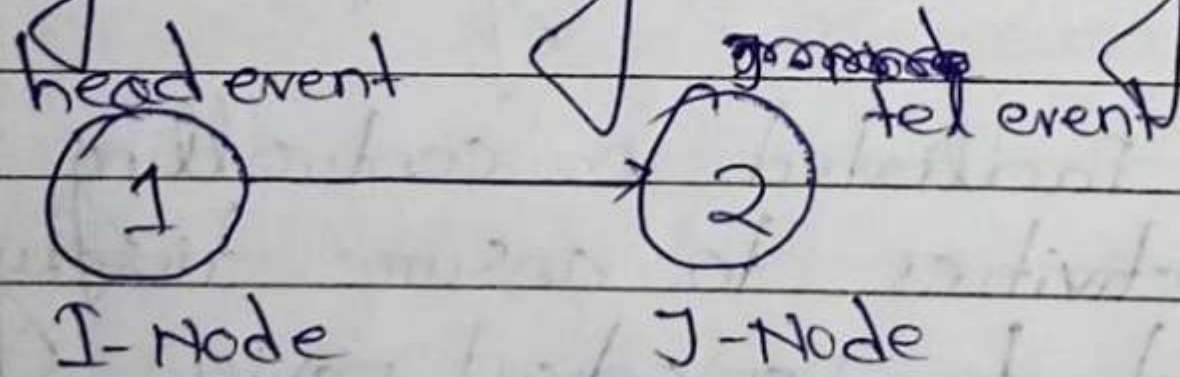 head event
tel event
1 2
I-Node J-Node